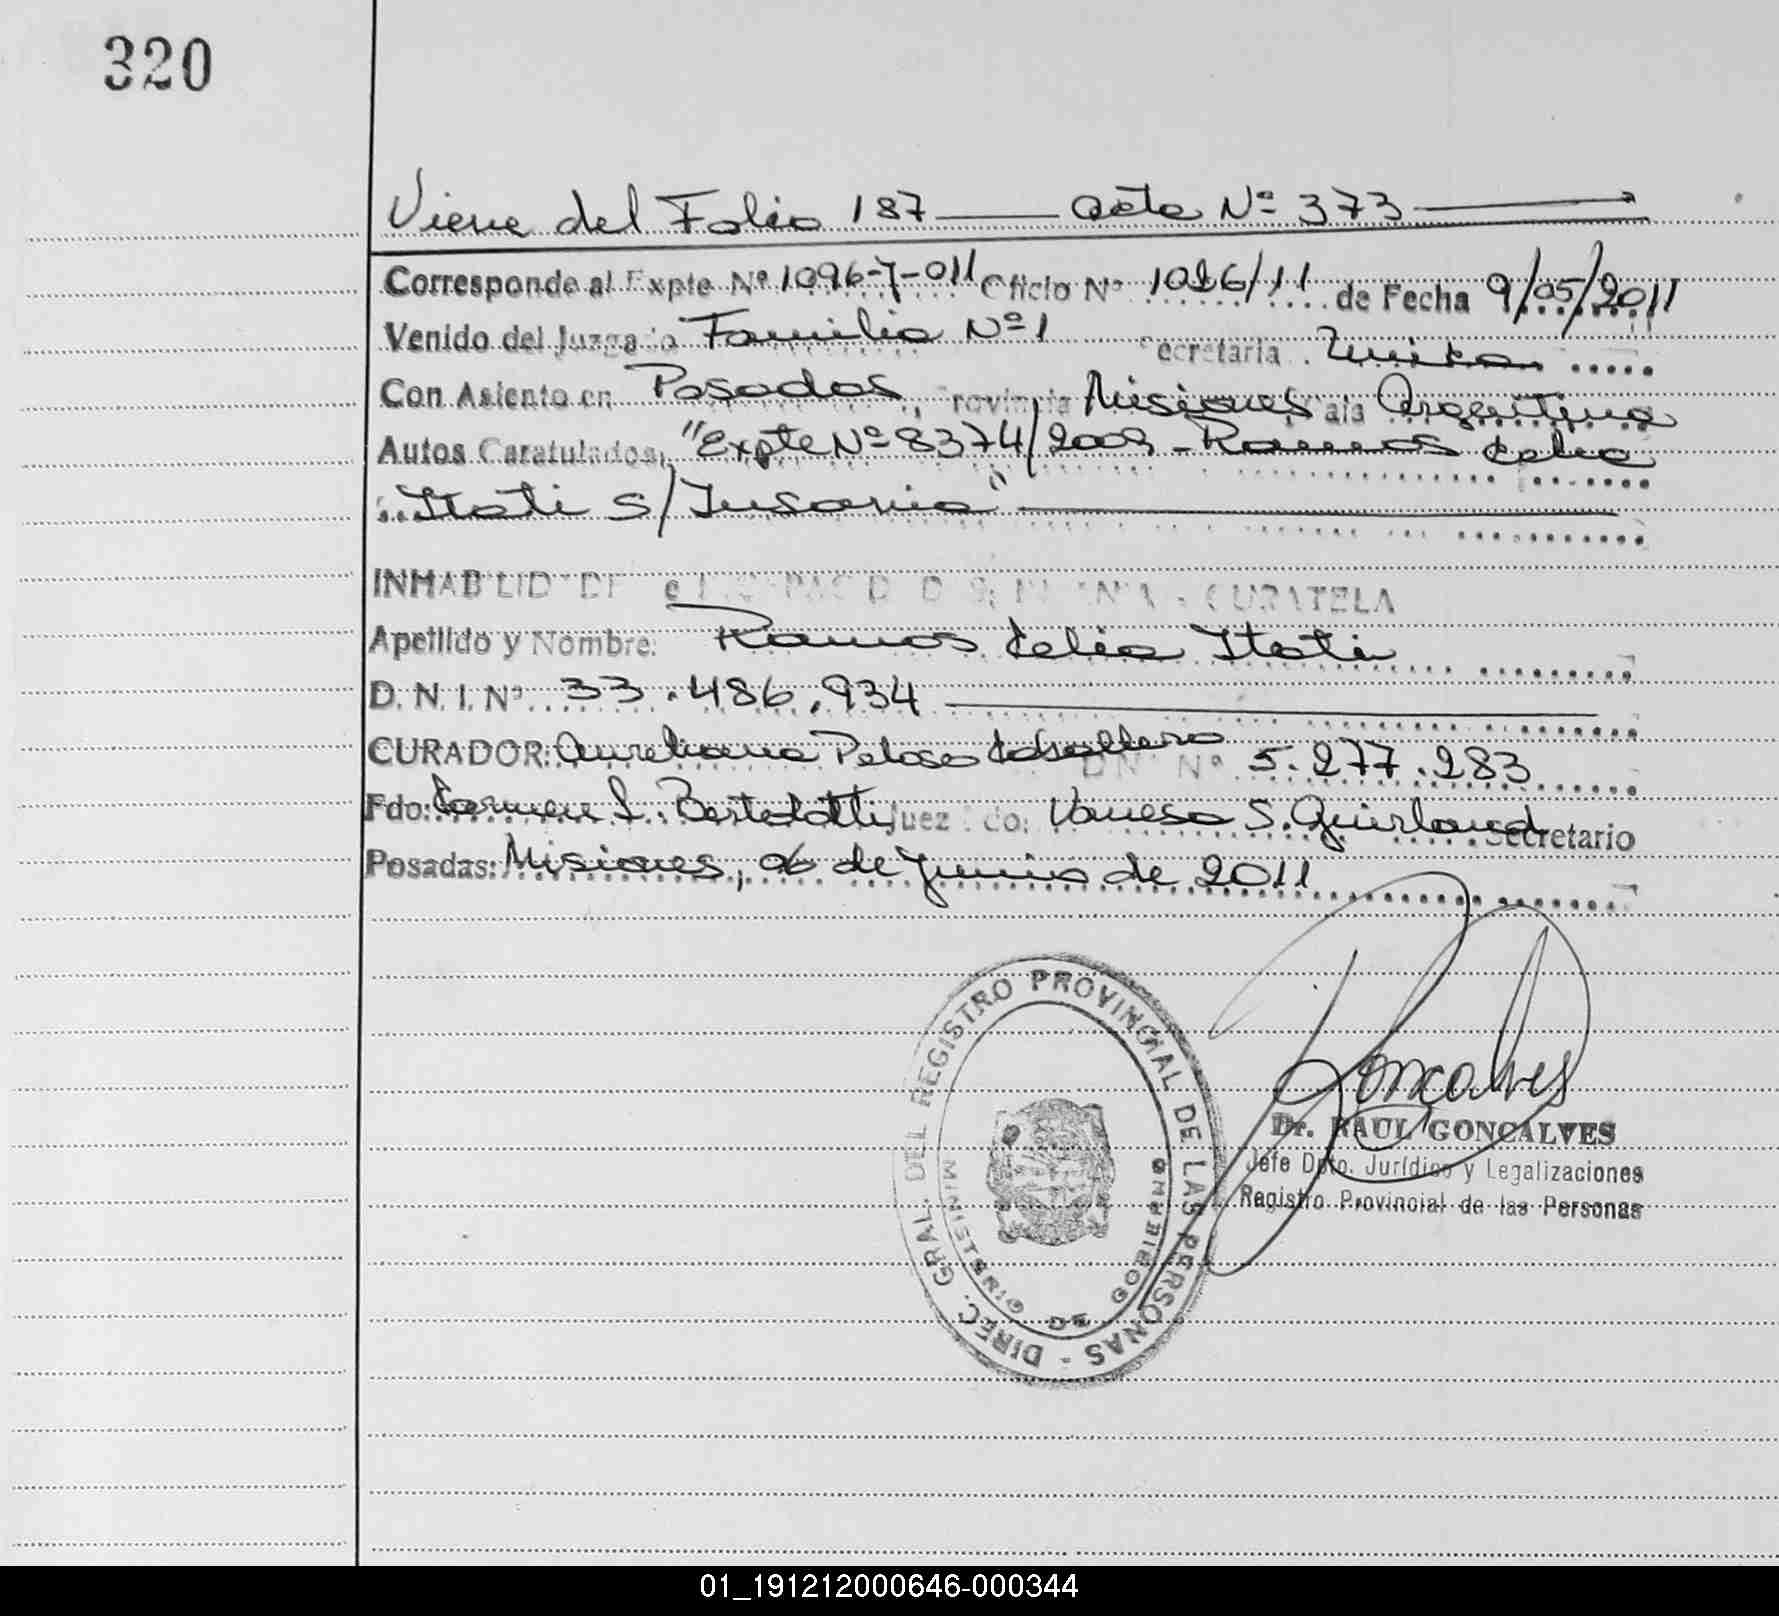 320
Viene del Folio 187 —— acta Nº 373 ——
Corresponde al Expte Nº 1096-J-011 Oficio Nº 1026/11 de Fecha 9/05/2011
Venido del Juzgado Familia Nº 1 Secretaria Unica
Con Asiento en Posadas, Provincia Misiones Pais Argentina
Autos Caratulados: "Expte Nº 8374/2003 - Ramos Celia
Itati S/ Insania" ——
INHABILIDADES e INCAPACIDADES: INSANIA - CURATELA
Apellido y Nombre: Ramos Celia Itati
D. N. I. Nº 33.486.934 ——
CURADOR: Aureliana Peloso Caballero DNI Nº 5.277.283
Fdo: Carmen L. Bertolotti Juez Fdo: Vanesa S. Quirland Secretario
Posadas: Misiones, 06 de Junio de 2011
DIREC. GRAL. DEL REGISTRO PROVINCIAL DE LAS PERSONAS -
MINISTERIO DE GOBIERNO
Goncalves
Dr. RAUL GONCALVES
Jefe Dpto. Jurídico y Legalizaciones
Registro Provincial de las Personas
01_191212000646-000344